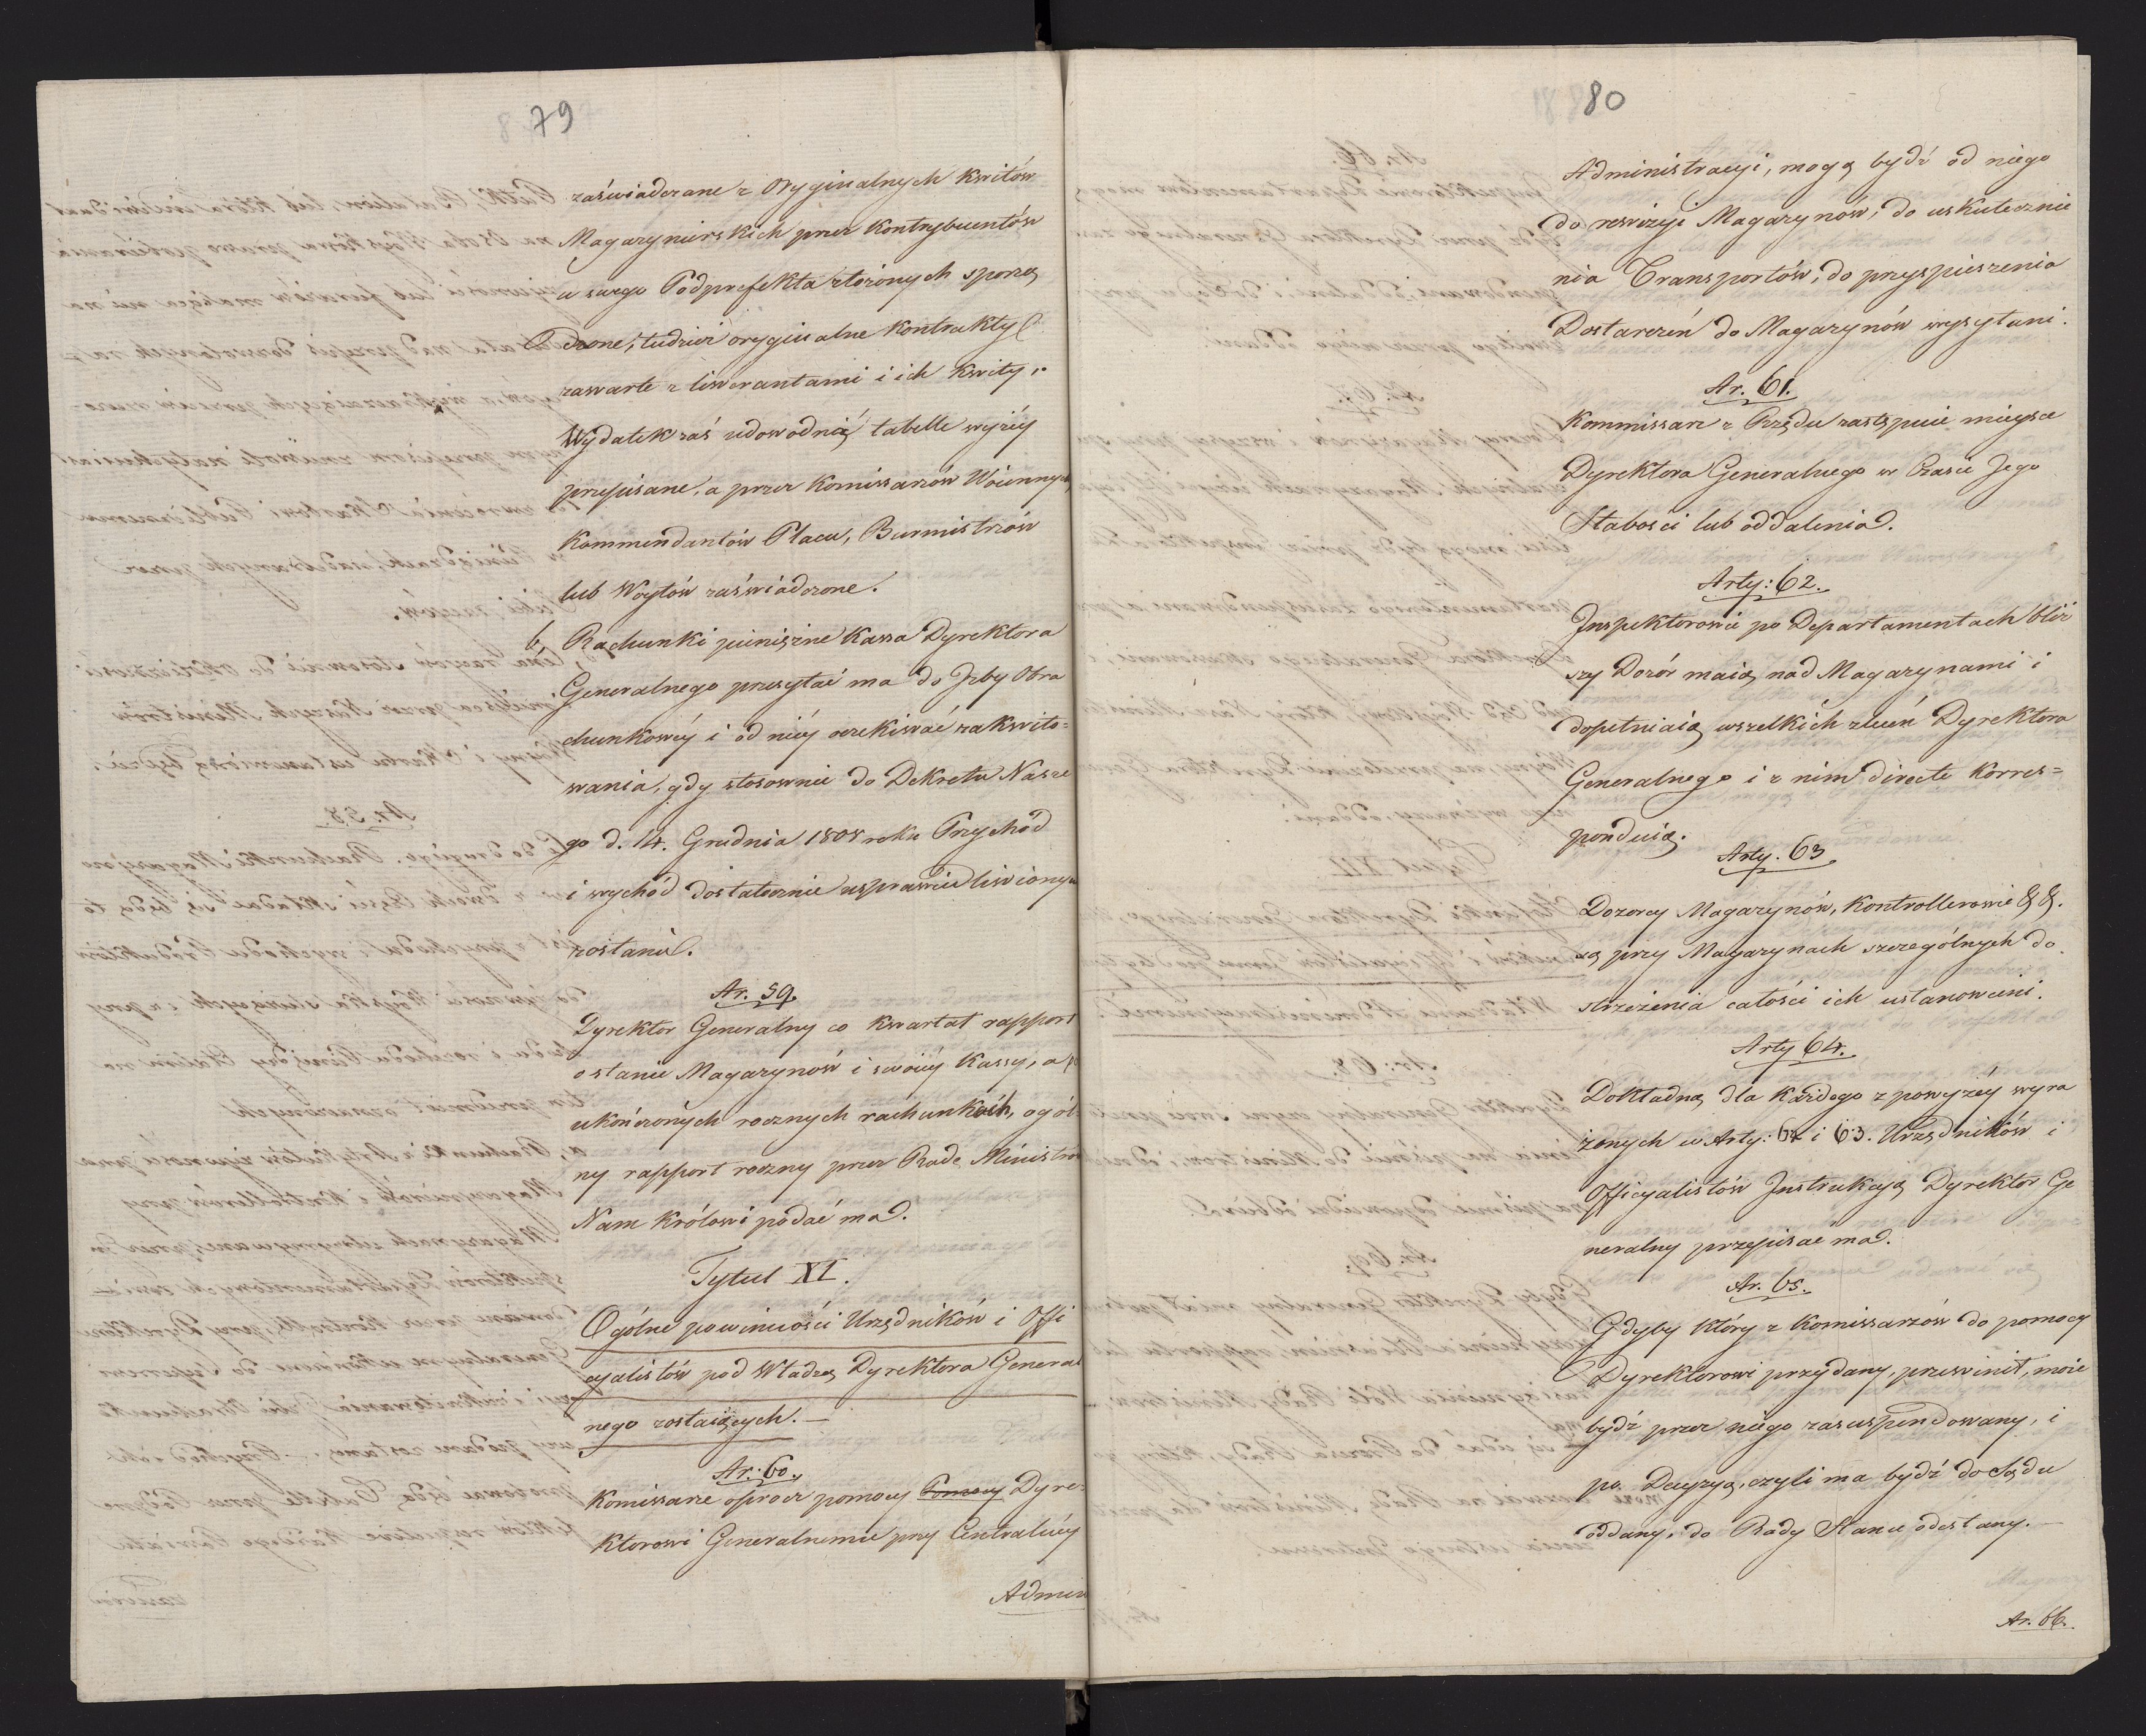 79
zaświadczane z Oryginalnych kwitów
Magazynierskich przez kontrybuentów
u swego Podprefekta złożonych sporzą
dzone, tudzież oryginalne kontrakty
zawarte z liwerantami i ich kwity,
Wydatek zaś udowodnią tabelle wyżéy
przepisane, a przez Komissarzów Woiennych,
Kommendantów Placu, Burmistrzów
lub Woytów zaświadczone.
b, Rachunki pieniężne Kassa Dyrektora
Generalnego przesyłać ma do Izby Obra
chunkowéy i od niéy oczekiwać zakwito=
wania, gdy stosownie do Dekretu Nasze
go d. 14. Grudnia 1808 roku Przychód
i wychód dostatecznie usprawiedliwionym
zostanie.
Ar. 59.
Dyrektor Generalny co kwartał rapport
o stanie Magazynów i swoiéy Kassy, a po
ukończonych rocznych rachunkach, ogól
ny rapport roczny przez Radę Ministrów
Nam Królowi podać ma.
Tytuł XI.
Ogólne powinności Urzędników i Offi
cyalistów pod Władzą Dyrektora General
nego zostaiących. —
Ar: 60.
Komissarze oprócz pomocy Pomocy Dyre=
ktorowi Generalnemu przy Centralnéy
Admini
80
Administracyi, mogą bydź od niego
do rewizyi Magazynów, do uskutecznie
nia Transportów, do przyspieszenia
Dostarczeń do Magazynów wysyłani.
Ar. 61.
Kommissarz z Rzędu zastępuie mieysce
Dyrektora Generalnego w Czasie Jego
Słabości lub oddalenia.
Arty: 62.
Inspektorowie po Departamentach bliż
szy Dozór maią nad Magazynami i
dopełniaią wszelkich zleceń Dyrektora
Generalnego i z nim directe korres=
ponduią.
Arty. 63.
Dozorcy Magazynów, Kontrollerowie & &.
są przy Magazynach szczególnych do
strzeżenia całości ich ustanowieni.
Arty 64.
Dokładną dla każdego z powyżéy wyra
żonych w Arty: 62 i 63. Urzędników i
Officyalistów Instrukcyą Dyrektor Ge
neralny przepisać ma.
Ar. 65.
Gdyby który z Komissarzów do pomocy
Dyrektorowi przydany, przewinił, może
bydź przez niego zasuspendowany, i
po Decyzyą, czyli ma bydź do Sądu
oddany, do Rady Stanu odesłany. —
Ar. 66.